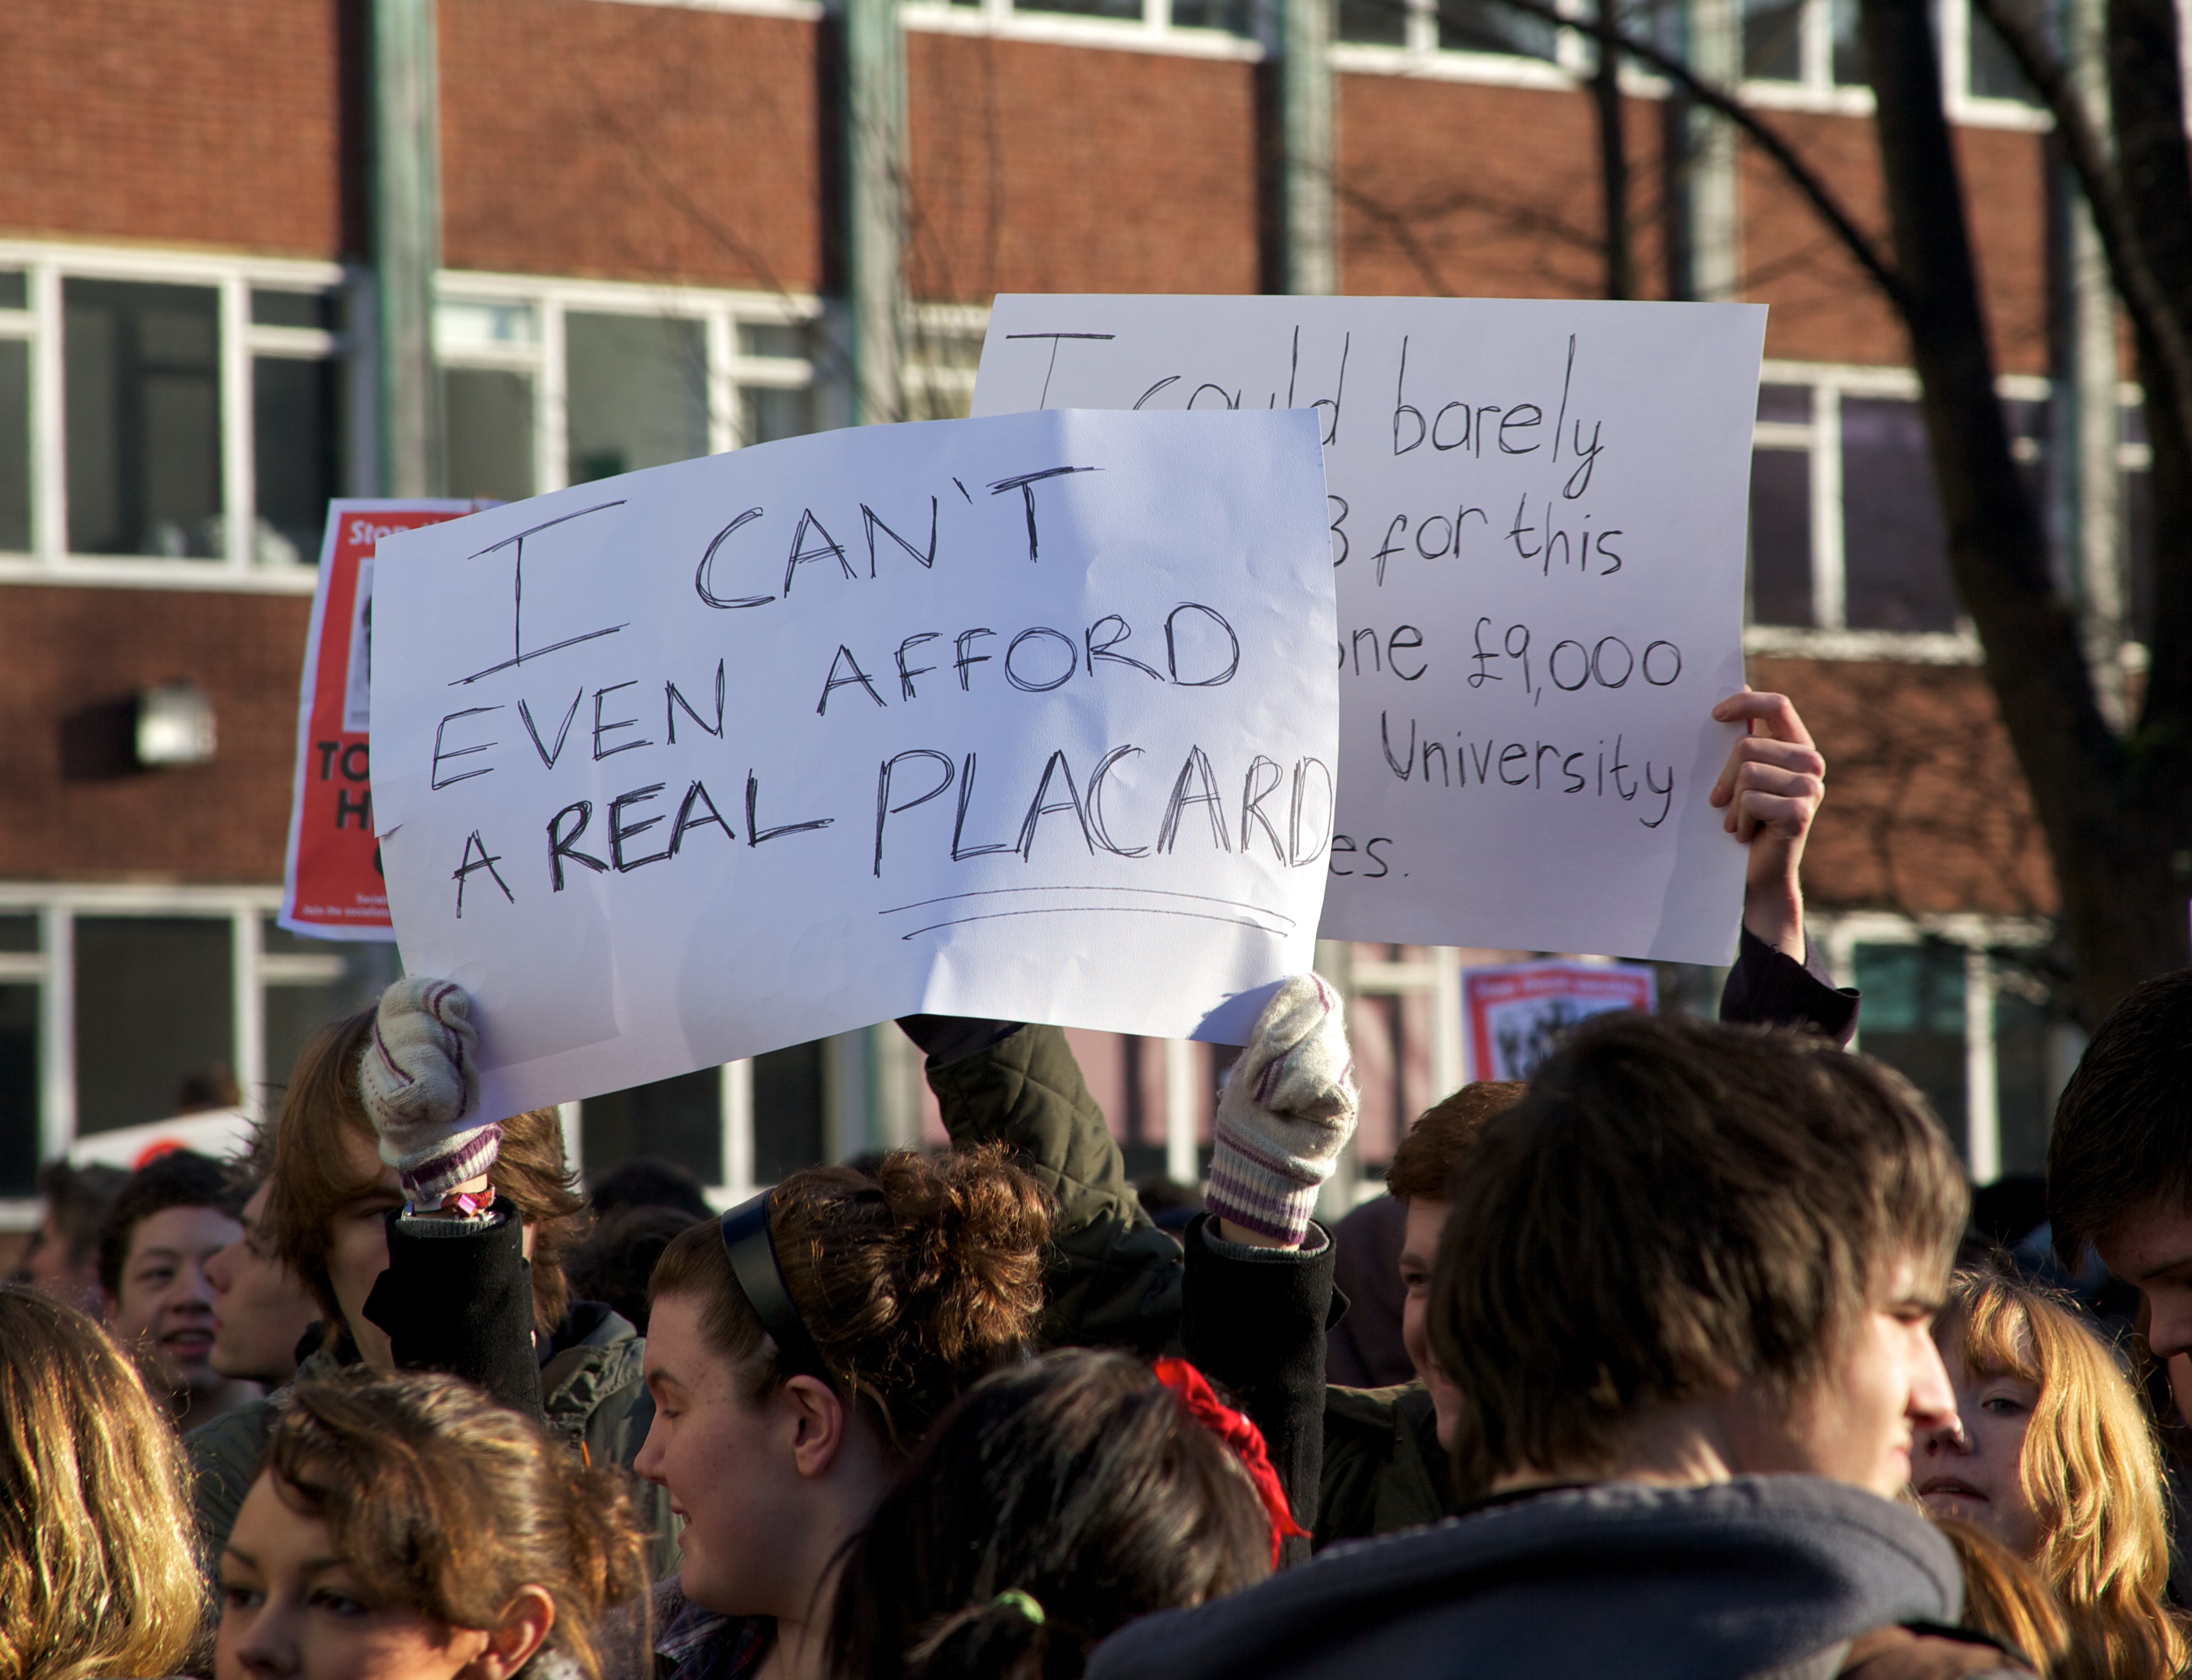 I CAN'T
EVEN AFFORD
A REAL PLACARD
I could barely
for this
£9,000
University